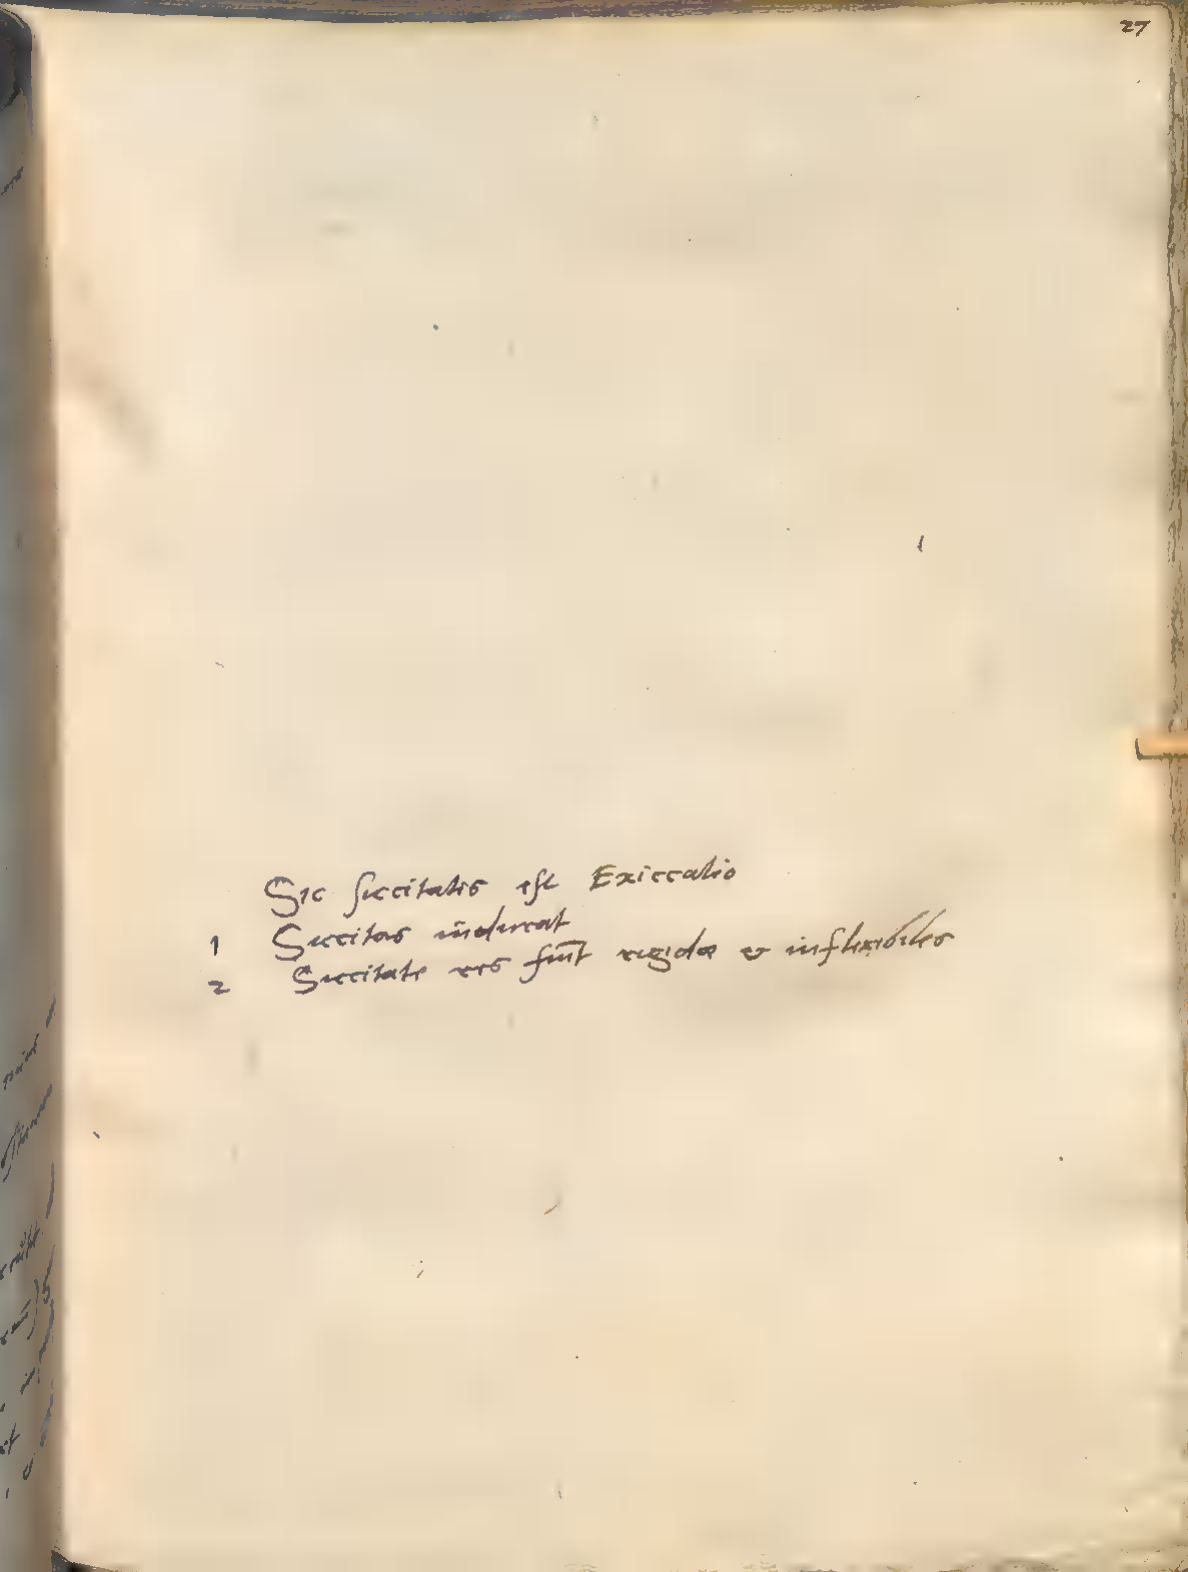 27
Sic siccitatis est Exiccatio
1 Siccitas indurat
2 Siccitate res fiūt rigidæ & inflexibiles